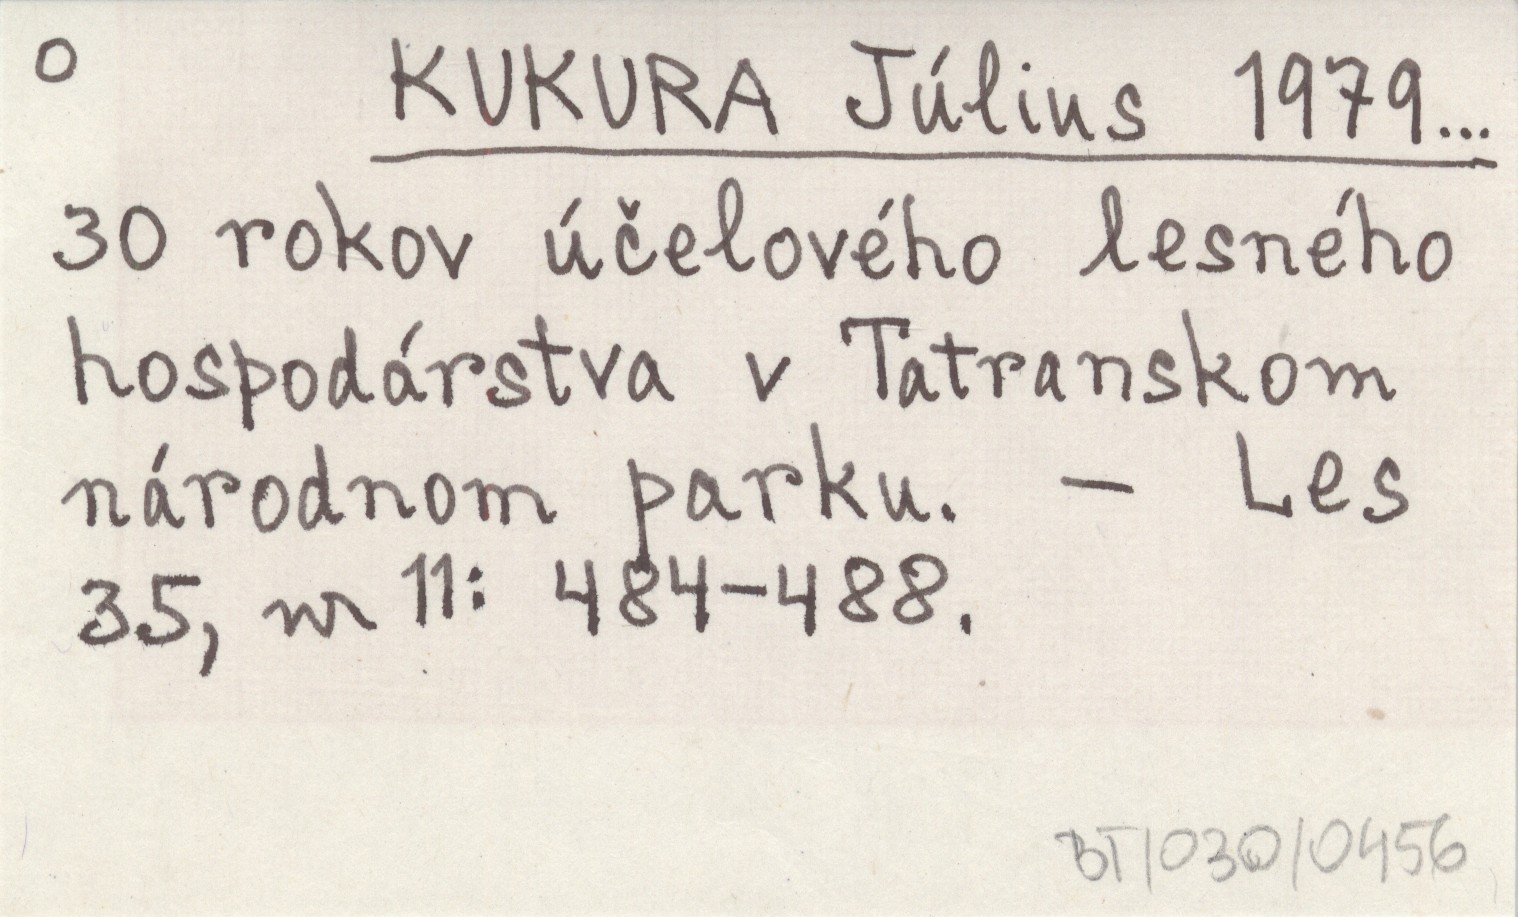 o KUKURA Július 1979...
30 rokov účelového lesného
hospodárstva v Tatranskom
národnom parku. – Les
35, nr 11: 484–488.
BT/030/0456